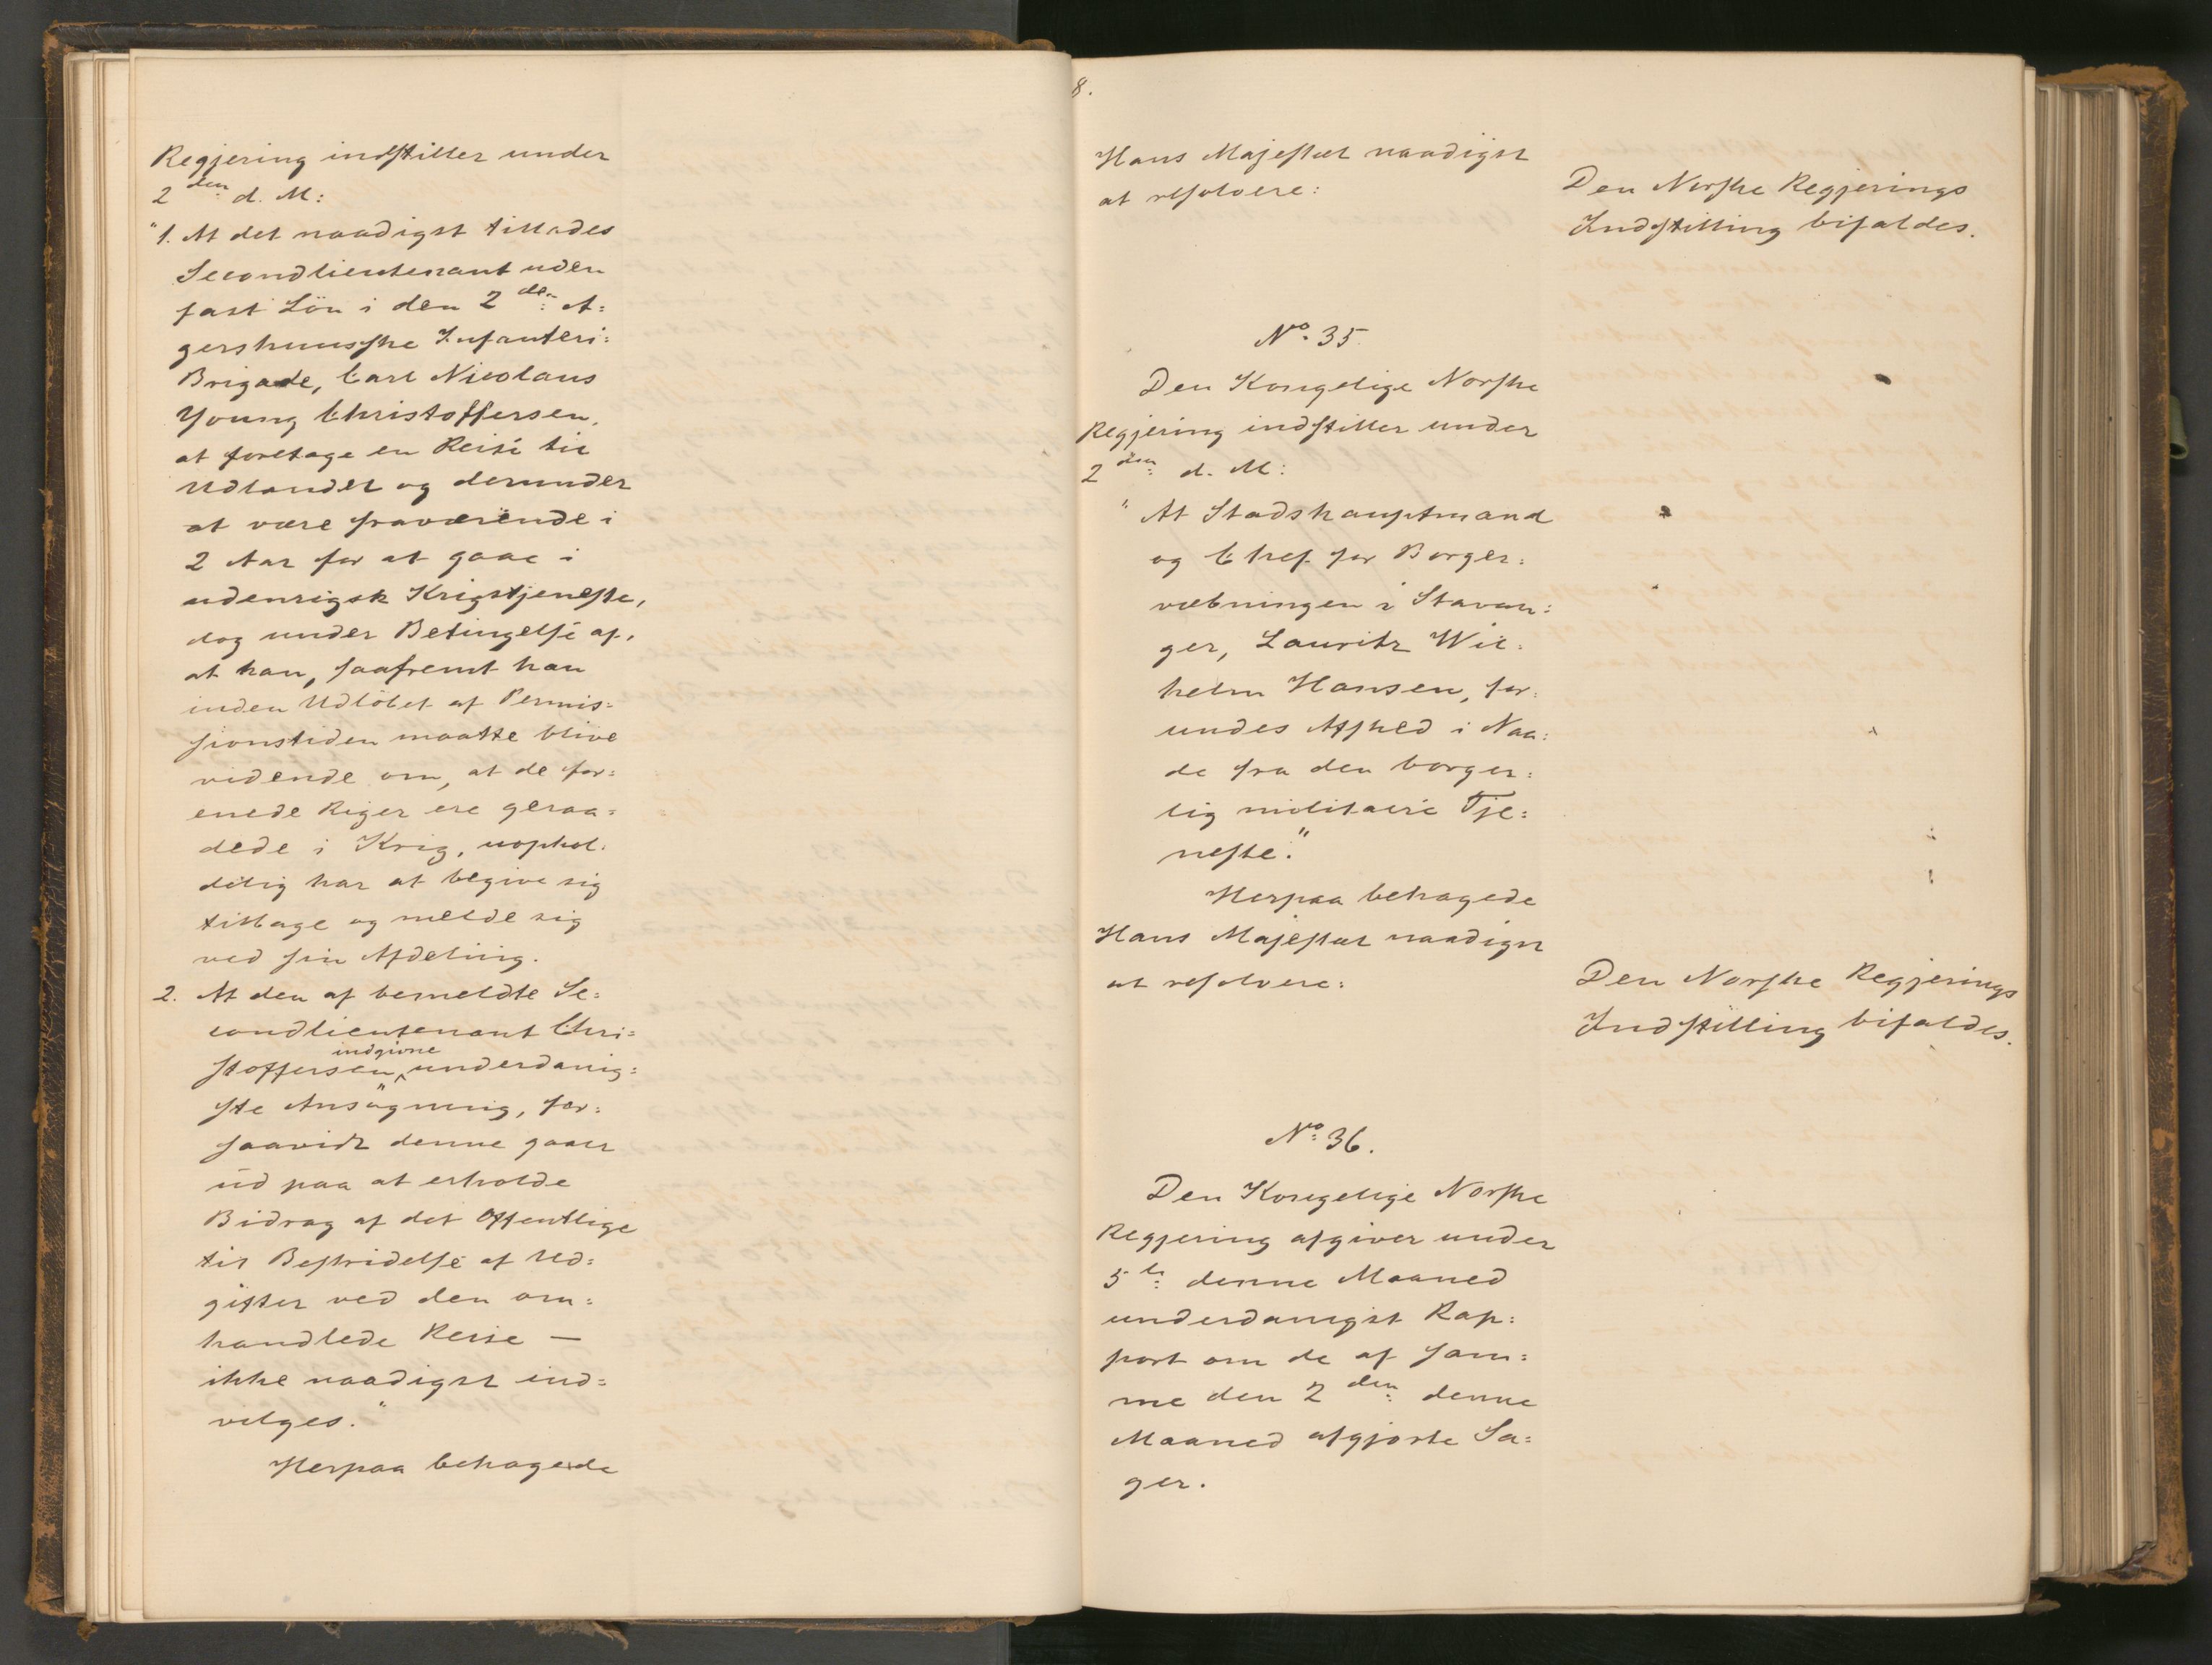 Regjering indstiller under
2den d. M:
"1. At det naadigst tillades
Secondlieutenant uden
fast Lön i den 2den A=
gershuusske Infanteri=
Brigade, Carl Nicolaus
Young Christoffersen,
at foretage en Reise til
Udlandet og derunder
at være fraværende i
2 Aar for at gaae i
udenrigsk Krigstjeneste,
dog under Betingelse af,
at han, saafremt han
inden Udlöbet af Permis=
sionstiden maatte blive
vidende om, at de for=
enede Riger ere geraa=
dede i Krig, uophol=
delig har at begive sig
tilbage og melde sig
ved sin Afdeling.
2. At den af bemeldte Se=
condlieutenant Chri=
stoffersen indgivne underdanig=
ste Ansögning, for=
saavidt denne gaaer
ud paa at erholde
Bidrag af det Offentlige
til Bestridelse af Ud=
gifter ved den om=
handlede Reise —
ikke naadigst ind=
vilges."
Herpaa behagede
8.
Hans Majestæt naadigst
at resolvere:
Den Norske Regjerings
Indstilling bifaldes.
No. 35.
Den Kongelige Norske
Regjering indstiller under
2den d. M:
"At Stadshauptmand
og Chef for Borger=
væbningen i Stavan=
ger, Lauritz Wil=
helm Hansen, for=
undes Afsked i Naa=
de fra den borger=
lig militaire Tje=
neste."
Herpaa behagede
Hans Majestæt naadigst
at resolvere:
Den Norske Regjerings
Indstilling bifaldes.
No. 36.
Den Kongelige Norske
Regjering afgiver under
5te denne Maaned
underdanigst Rap=
port om de af sam=
me den 2den denne
Maaned afgjorte Sa=
ger.